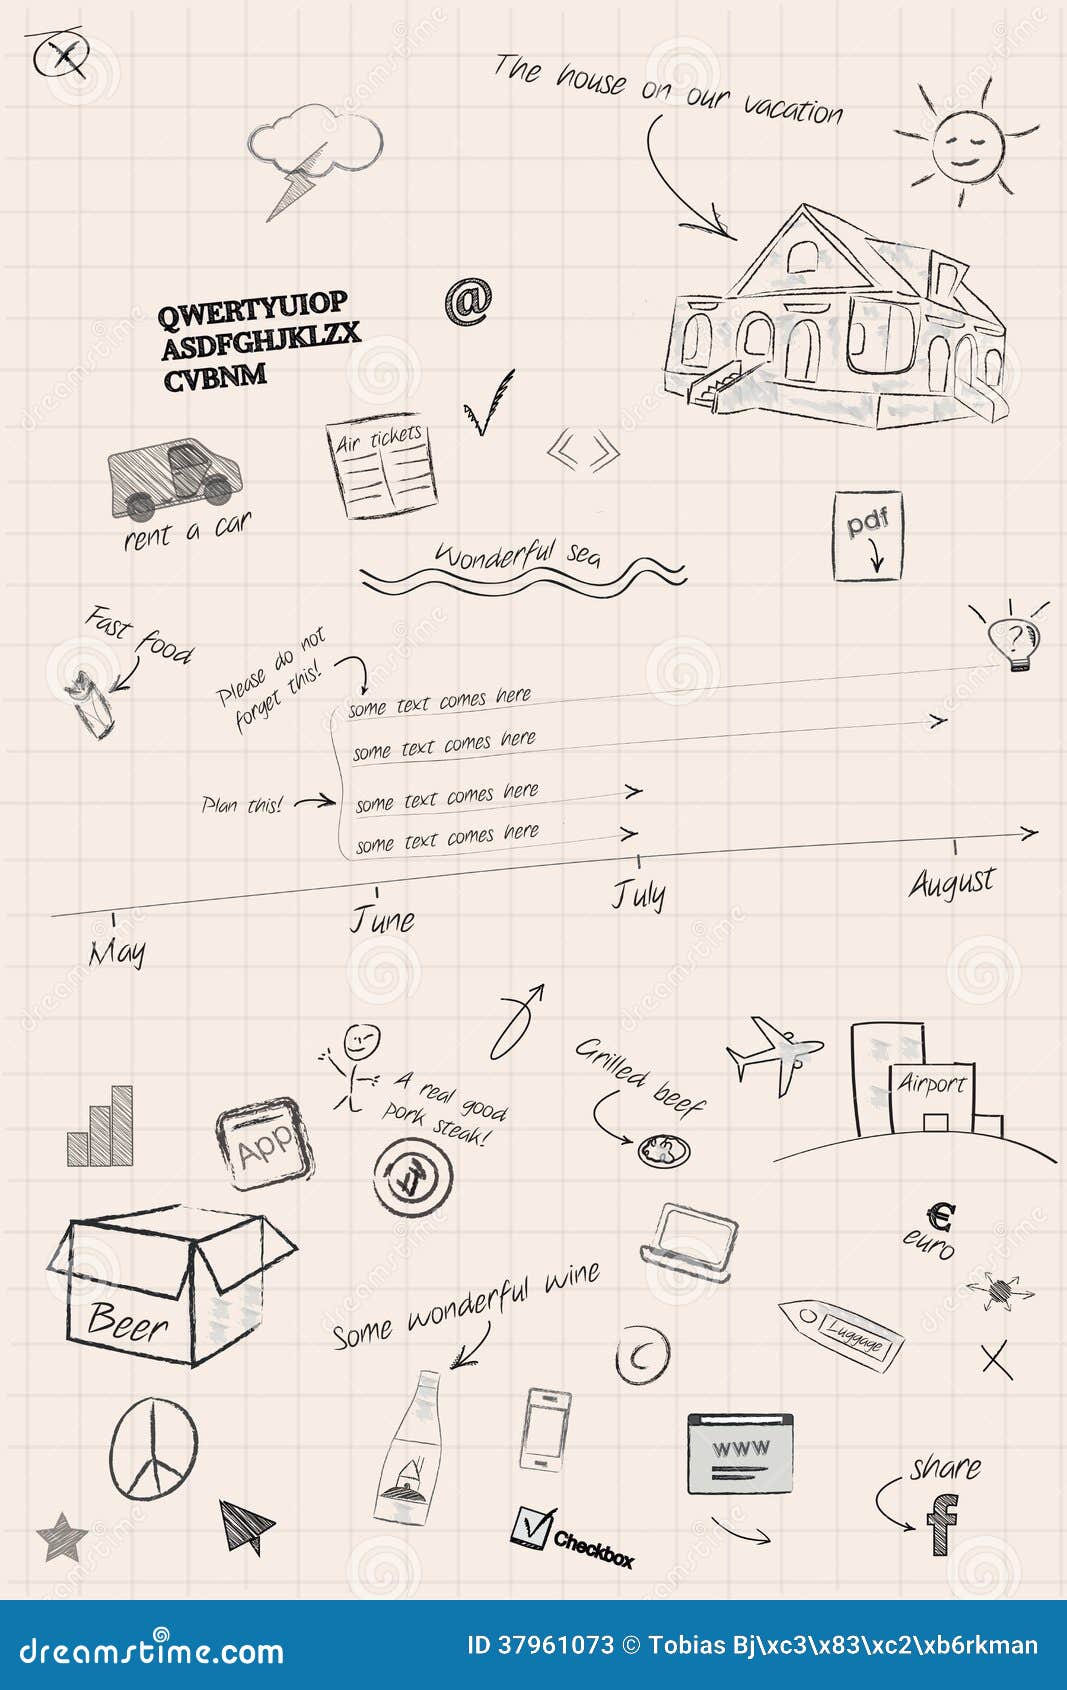 The house on our vacation
QWERTYUIOP
ASDFGHJKLZX
CVBNM
@
Air tickets
rent a car
pdf
Wonderful sea
Fast food
Please do not
forget this!
?
some text comes here
some text comes here
Plan this!
some text comes here
some text comes here
May
June
July
August
A real good
pork steak!
Grilled beef
Airport
App
€
euro
Beer
Some wonderful wine
Luggage
C
www
share
f
Checkbox
dreamstime.com
ID 37961073 © Tobias Bj\xc3\x83\xc2\xb6rkman